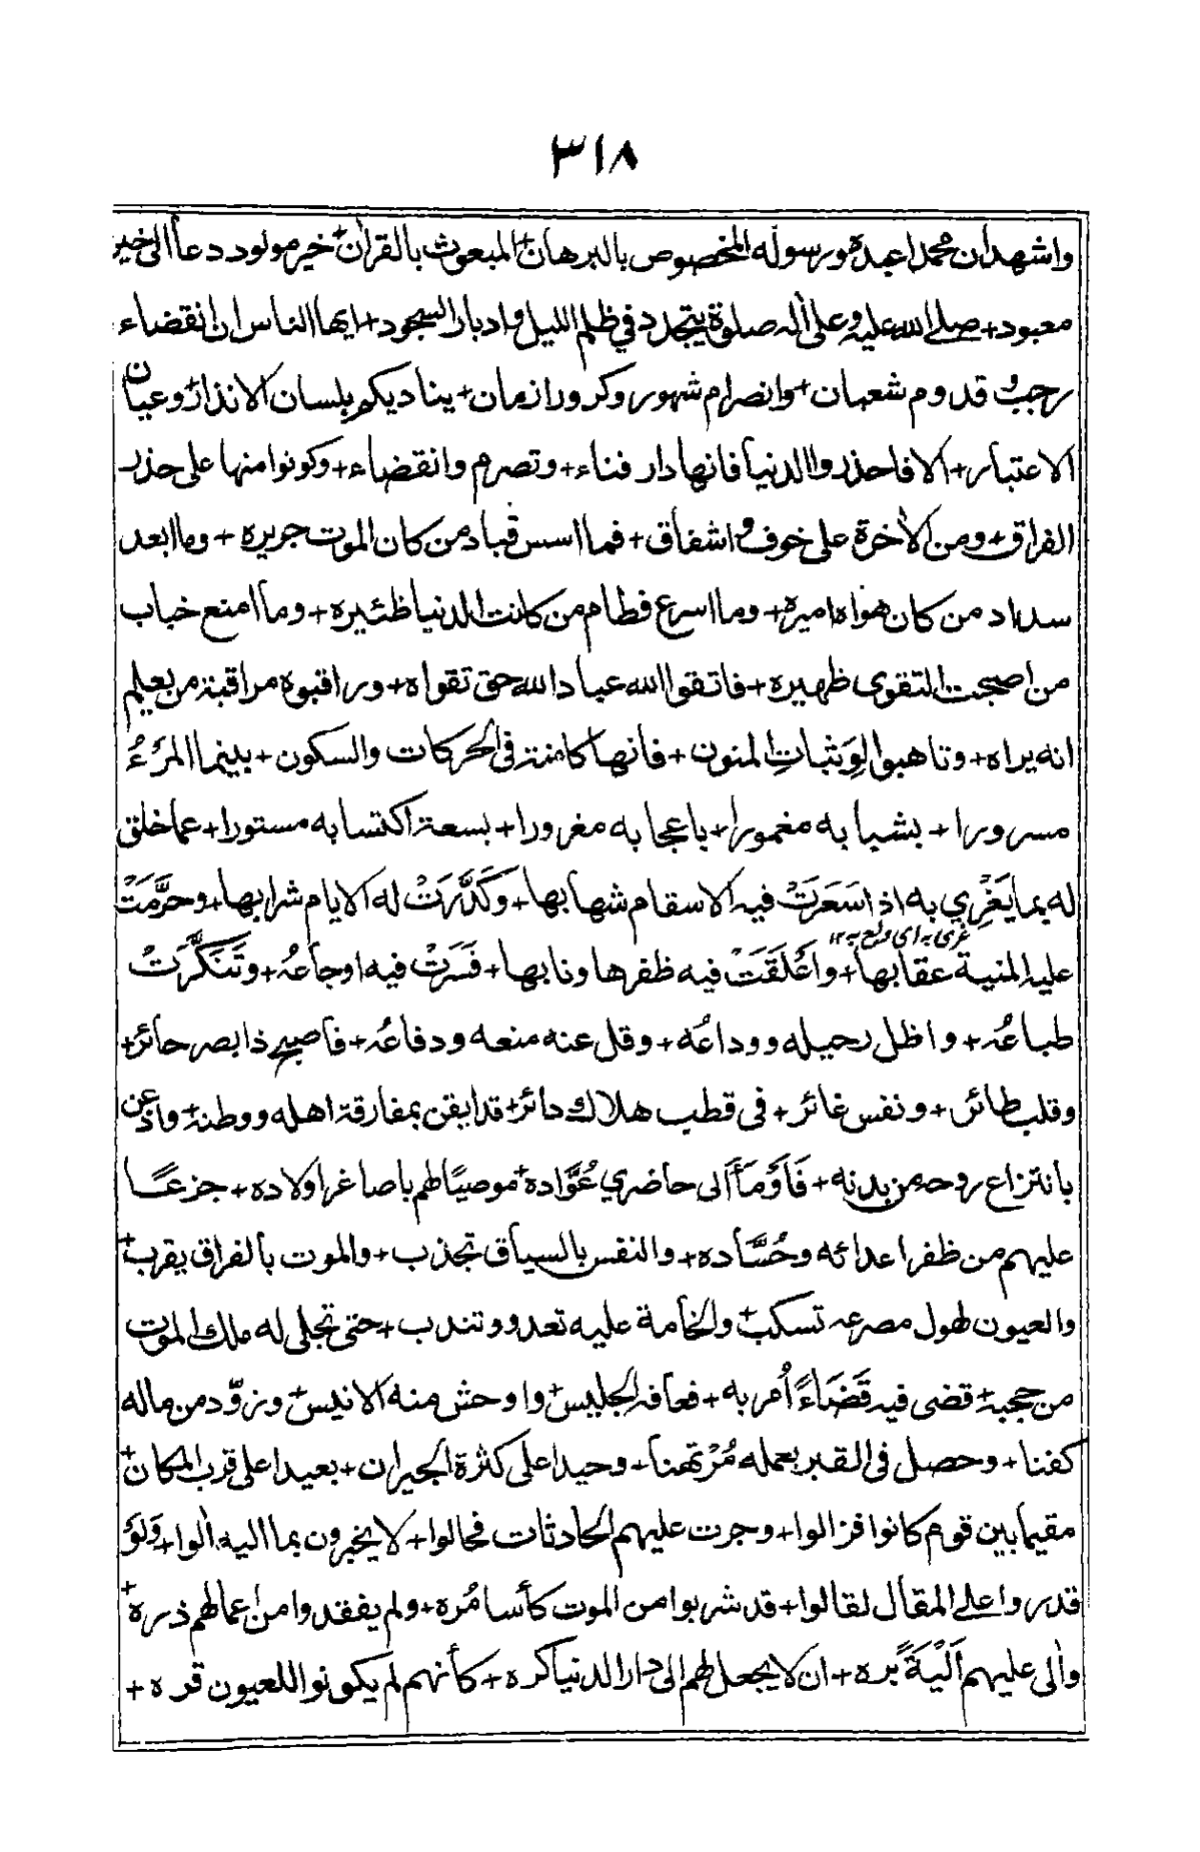 ٣١٨
واشهدان محمدا عبده ورسوله المخصوص بالبرهان+ المبعوث بالقران+ خير مولود دعا الى خير
معبود+ صلى الله عليه وعلى اله صلوة يتجدد في ظلم الليل وادبار السجود+ ايها الناس ان انقضاء
رجب و قدوم شعبان+ وانصرام شهور وكرور ازمان+ يناديكم بلسان الانذار+ وعيان
الاعتبار+ الا فاحذروا الدنيا فانها دار فناء+ وتصرم وانقضاء+ وكونوا منها على حذر
الفراق+ ومن الاخرة على خوف و اشفاق+ فما اسس قياد من كان الموت جريره+ وما ابعد
سداد من كان هواه اميره+ وما اسرع فطام من كانت الدنيا ظئيره+ وما امنع خباب
من اصبحت التقوى ظهيره+ فاتقوا الله عباد الله حق تقواه+ وراقبوه مراقبة من يعلم
انه يراه+ وتاهبوا لِوَثباتِ المنون+ فانها كامنة فى الحركات والسكون+ بينما المرَءُ
مسرورا+ بشبابه مغمورا+ باعجابه مغرورا+ بسعة اكتسابه مستورا+ عما خلق
له بما يَغْرِي به اذ اسَعَرَتْ فيه الاسقام شهابها+ وكَدَّرَتْ له الايام شرابها+ وحرَّمَتْ
غرى به اى ولع به ١٢
عليه المنية عقابها+ واَعْلَقَتْ فيه ظفرها ونابها+ فَسَرَتْ فيه اوجاعُه+ وتَنَكَّرَتْ
طباعُه+ واظل رحيله ووداعُه+ وقل عنه منعه ودفاعُه+ فاصبح ذا بصر حائر+
وقلب طائر+ ونفس غائر+ فى قطب هلاك دائر+ قد ايقن بمفارقة اهله ووطنه+ واذعن
بانتزاع روحه من بدنه+ فَاَوْمَأَ الى حاضري عُوَّاده+ موصيًا لهم باصاغر اولاده+ جزعًا
عليهم من ظفر اعدائه وحُسَّاده+ والنفس بالسياق تجذب+ والموت بالفراق يقرب+
والعيون لهول مصرعه تسكب+ والحامة عليه تعدد وتندب+ حتى تجلى له ملك الموت
من حجبه+ قضى فيه قَضَاءً اُمر به+ فعافه الجليس+ واوحش منه الانيس+ وزوّد من ماله
كفنا+ وحصل فى القبر بعمله مُرْتهنا+ وحيدا على كثرة الجيران+ بعيدا على قرب المكان+
مقيما بين قوم كانوا فزالوا+ وجرت عليهم الحادثات فحالوا+ لا يخبرون بما اليه الوا+ وَلَوْ
قدروا على المقال لقالوا+ قد شربوا من الموت كأسا مُره+ ولم يفقدوا من اعمالهم ذرة+
والى عليهم اَلْيَةً بره+ ان لا يجعل لهم الى دار الدنيا كره+ كأنهم لم يكونوا للعيون قره+